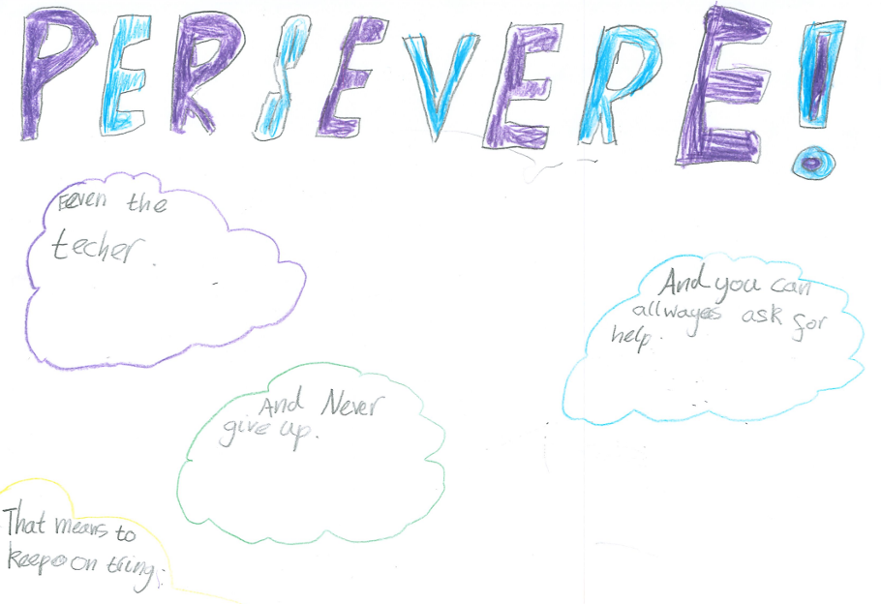 PERSEVERE!
Eeven the
techer.
And you can
allwayes ask for
help.
And Never
give up.
That means to
keep on tring.